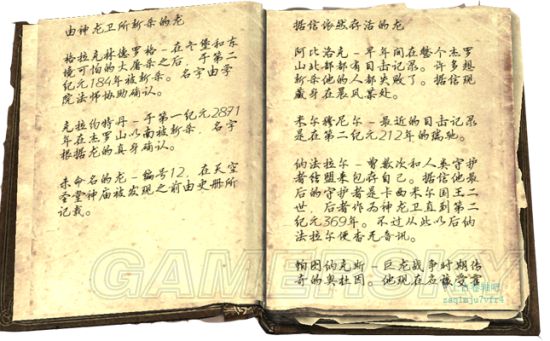 由神龙卫所斩杀的龙
格拉克林德罗格-在冬堡和东
境可怕的大屠杀之后，于第二
纪元184年被斩杀。名字由学
院法师协助确认。
克拉约特丹-于第一纪元2871
年在杰罗山以南被斩杀，名字
根据龙的真身确认。
未命名的龙-编号12，在天空
圣堂神庙被发现之前由史册所
记载。
据信依然存活的龙
阿比洛克-早年间在整个杰罗
山北部都有目击记录。许多想
斩杀他的人都失败了。据信现
藏身在晨风某处。
米尔穆尼尔-最近的目击记录
是在第二纪元212年的瑞驰。
纳法拉尔-曾数次和人类守护
者结盟来包存自己。据信他最
后的守护者是卡西米尔国王二
世，后者作为神龙卫直到第二
纪元369年。不过从此以后纳
法拉尔便杳无音讯。
帕图纳克斯-巨龙战争时期传
奇的奥杜因。他现在名族受害
GAMERSKY
上古卷轴吧
zaq1mju7vfr4